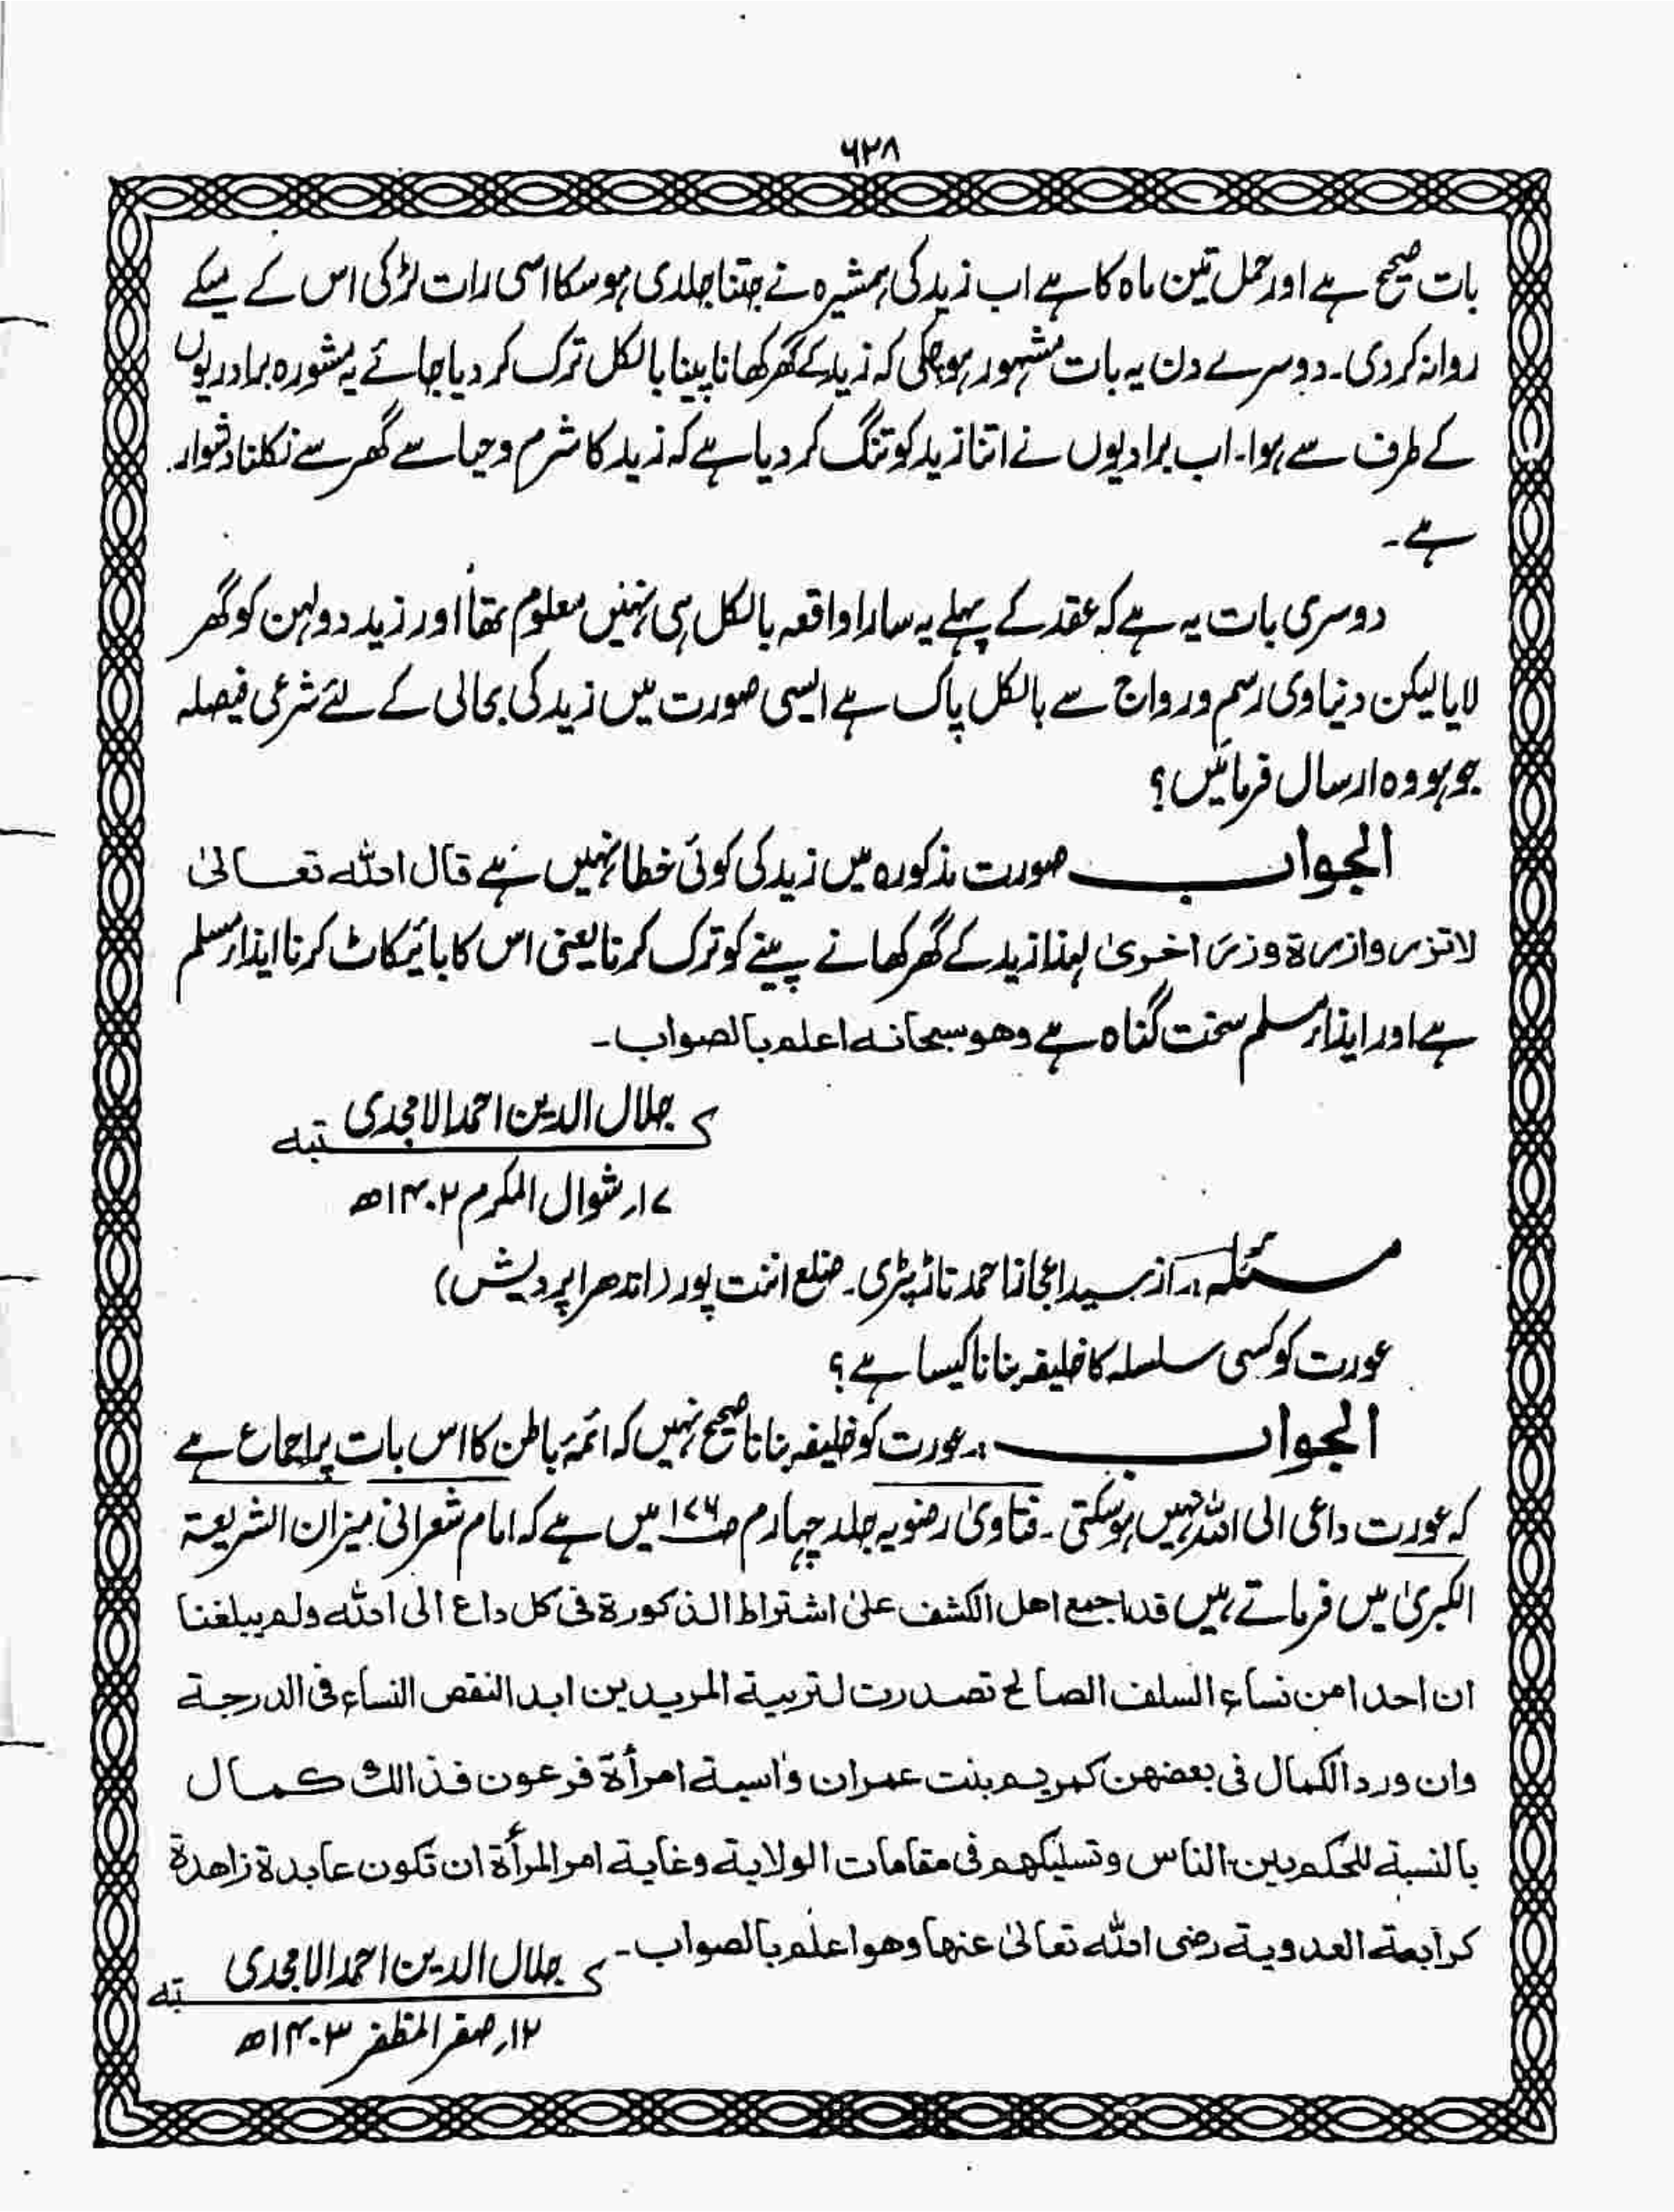 ۶۲۸
بات صحیح ہے اور حمل تین ماہ کا ہے اب زید کی ہمشیرہ نے جتنا جلدی ہو سکا اسی رات لڑکی اس کے میکے
روانہ کردی۔ دوسرے دن یہ بات مشہور ہوچکی کہ زید کے گھر کھانا پینا بالکل ترک کر دیا جائے یہ مشورہ برادریوں
کے طرف سے ہوا۔ اب برادیوں نے اتنا زید کو تنگ کر دیا ہے کہ زید کا شرم و حیا سے گھر سے نکلنا دشوار
ہے۔
دوسری بات یہ ہے کہ عقد کے پہلے یہ سارا واقعہ بالکل ہی نہیں معلوم تھا اور زید دولہن کو گھر
لایا لیکن دنیاوی رسم و رواج سے بالکل پاک ہے ایسی صورت میں زید کی بحالی کے لئے شرعی فیصلہ
جو ہو وہ ارسال فرمائیں؟
الجواب صورت مذکورہ میں زید کی کوئی خطا نہیں ہے قال اللہ تعالیٰ
لا تزر وازرۃ وزر اخریٰ لہٰذا زید کے گھر کھانے پینے کو ترک کرنا یعنی اس کا بائیکاٹ کرنا ایذاء مسلم
ہے اور ایذاء مسلم سخت گناہ ہے وھو سبحانہ اعلم بالصواب۔
کتبہ جلال الدین احمد الامجدی
۱۷؍ شوال المکرم ۱۴۰۲ھ
مسئلہ:۔ از سید اعجاز احمد تاڈپتری۔ ضلع اننت پور (اندھرا پردیش)
عورت کو کسی سلسلہ کا خلیفہ بنانا کیسا ہے؟
الجواب :۔ عورت کو خلیفہ بنانا صحیح نہیں کہ ائمۂ باطن کا اس بات پر اجماع ہے
کہ عورت داعی الی اللہ نہیں ہوسکتی۔ فتاویٰ رضویہ جلد چہارم ص۱۷۶ میں ہے کہ امام شعرانی میزان الشریعۃ
الکبریٰ میں فرماتے ہیں قد اجمع اھل الکشف علیٰ اشتراط الذکورۃ فی کل داع الی اللہ ولم یبلغنا
ان احدا من نساء السلف الصالح تصدرت لتربیۃ المریدین ابدا لنقص النساء فی الدرجۃ
وان ورد الکمال فی بعضھن کمریم بنت عمران واٰسیۃ امرأۃ فرعون فذالک کمال
بالنسبۃ للحکم بین الناس وتسلیکھم فی مقامات الولایۃ وغایۃ امر المرأۃ ان تکون عابدۃ زاھدۃ
کرابعۃ العدویۃ رضی اللہ تعالیٰ عنھا وھو اعلم بالصواب۔
کتبہ جلال الدین احمد الامجدی
۱۲؍ صفر المظفر ۱۴۰۳ھ